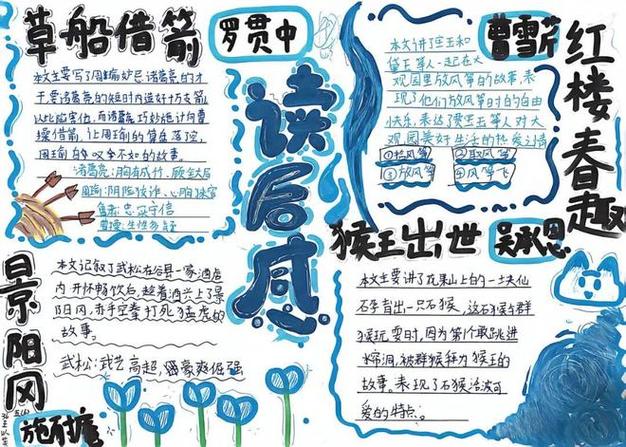 草船借箭
罗贯中
本文主要写了周瑜妒忌诸葛亮的才
干,要诸葛亮在短时内造好十万支箭,
以此陷害他,而诸葛亮巧妙施计向曹
操借箭,让周瑜的算盘落空,
周瑜自叹不如的故事。
诸葛亮:胸有成竹、顾全大局
周瑜:阴险狡诈、心胸狭窄
鲁肃:忠
守信
曹操:生性多疑
读后感
曹雪芹
红楼春趣
本文讲了宝玉和
黛玉等人一起在大
观园里放风筝的故事,表
现了他们放风筝时的自由
快乐,表达了宝玉等人对大
观园美好生活的热爱之情
②取风筝
③放风筝
④风筝飞
猴王出世
吴承恩
本文主要讲了花果山上的一块仙
石孕育出一只石猴,这石猴与群
猴玩耍时,因为第一个敢跳进
水帘洞,被群猴拜为猴王的
故事。表现了石猴活泼可
爱的特点。
景阳冈
施耐庵
本文记叙了武松在阳谷县一家酒店
内开怀畅饮后,趁着酒兴上了景
阳冈,赤手空拳打死猛虎的
故事。
武松:武艺高超,豪爽倔强